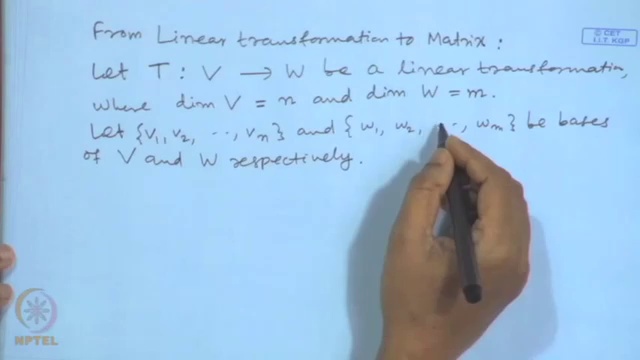 From Linear transformation to Matrix :
© CET
I.I.T. KGP
Let T : V → W be a linear transformation,
where dim V = n and dim W = m.
Let {v1, v2, ⋯, vn} and { w1, w2, ⋯, wm} be bases
of V and W respectively.
NPTEL